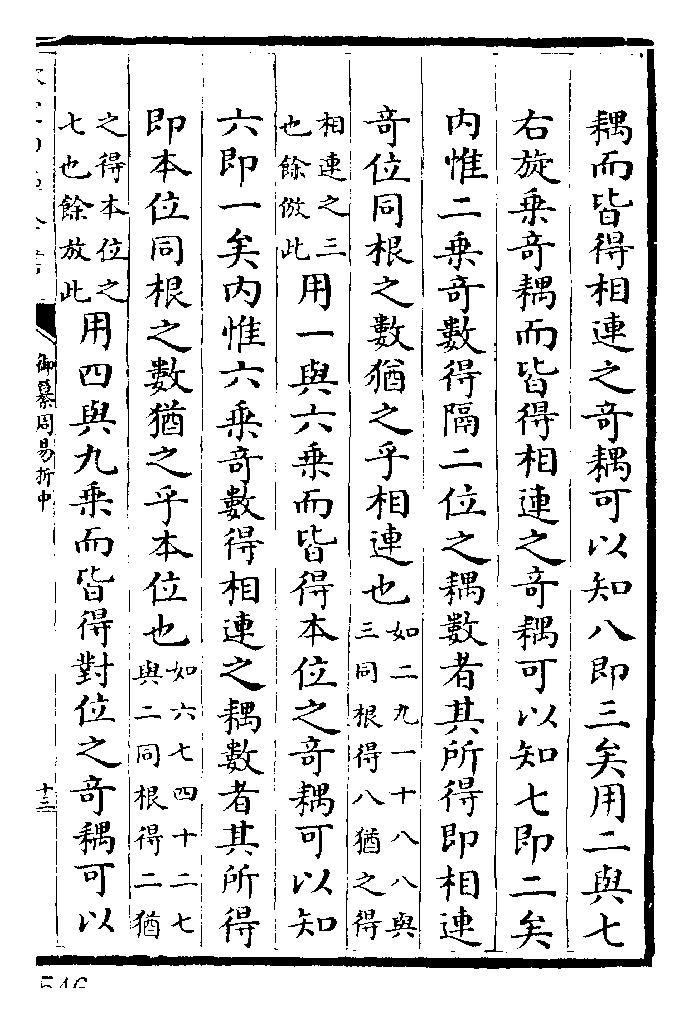 耦而皆得相連之奇耦可以知八即三矣用二與七
右旋乗奇耦而皆得相連之奇耦可以知七即二矣
内惟二乗奇數得隔二位之耦數者其所得即相連
奇位同根之數猶之乎相連也如二九一十八八與
三同根得八猶之得
相連之三
也餘倣此
用一與六乗而皆得本位之奇耦可以知
六即一矣内惟六乗奇數得相連之耦數者其所得
即本位同根之數猶之乎本位也如六七四十二七
與二同根得二猶
之得本位之
七也餘放此
用四與九乗而皆得對位之奇耦可以
御纂周易折中
十三
546